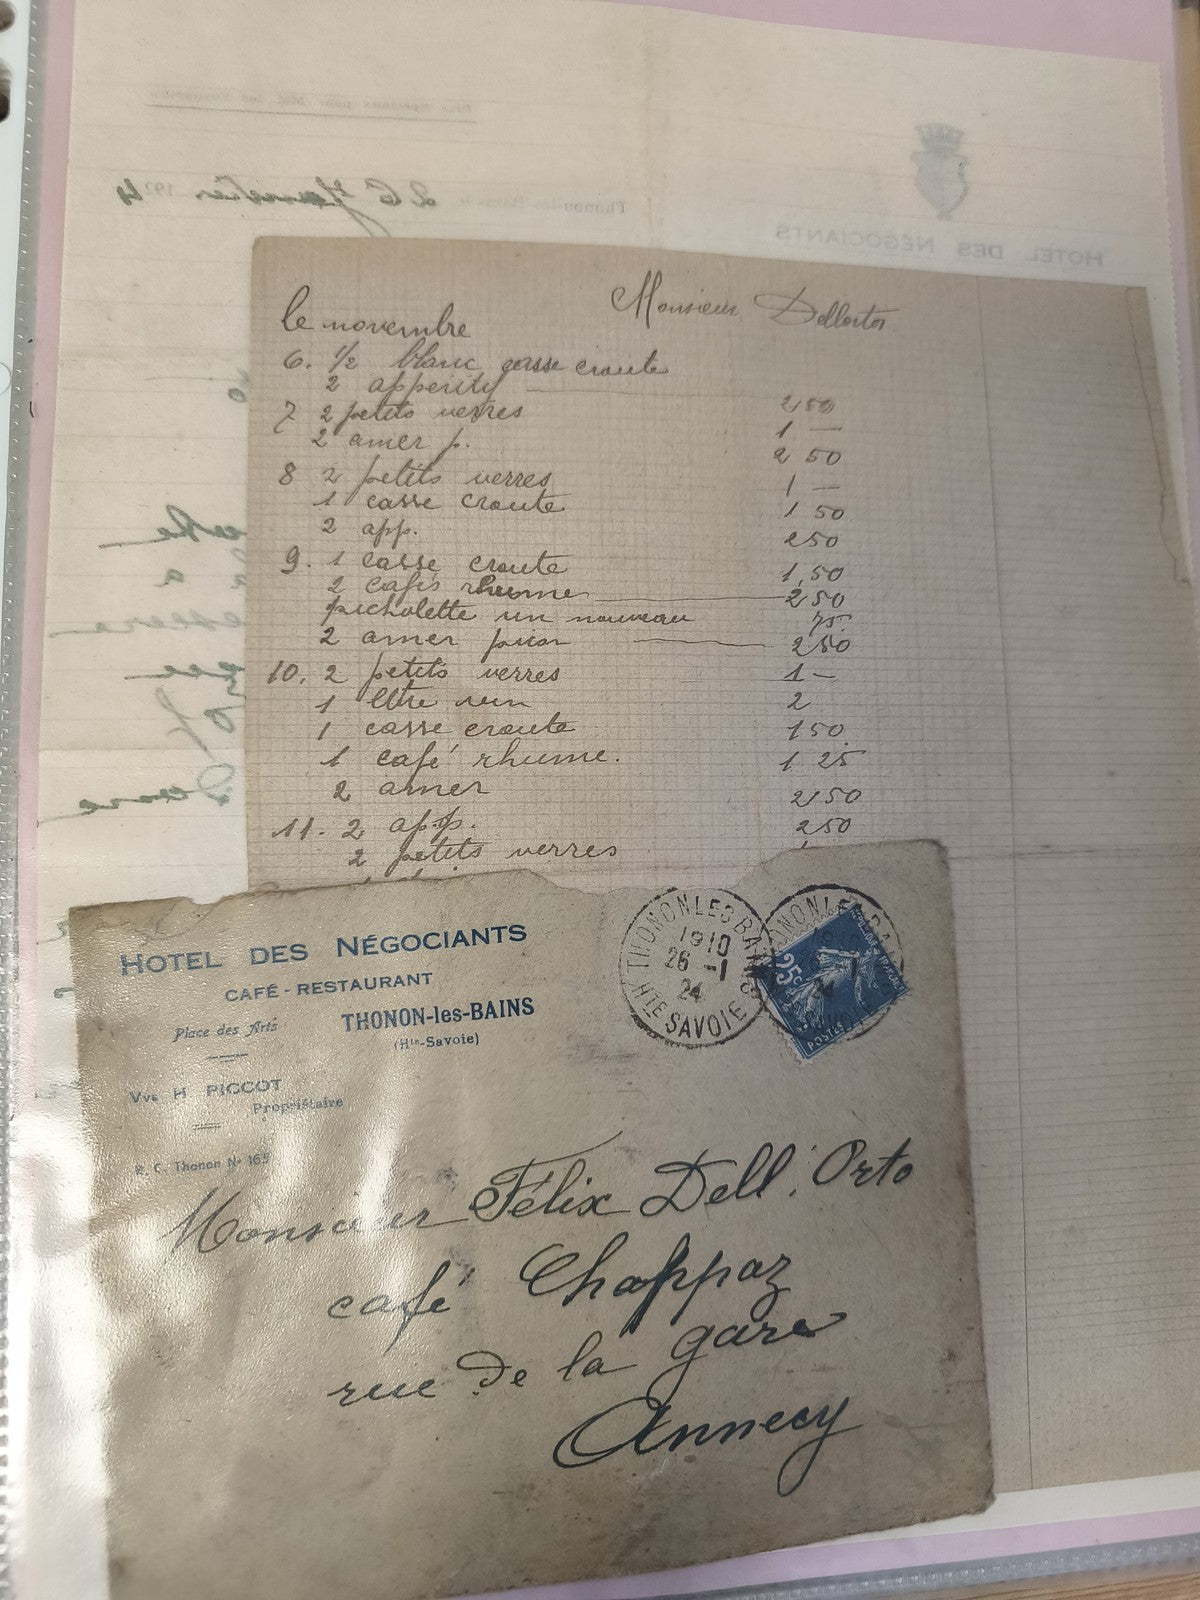 26 Janvier 1924
Thonon-les-Bains, le
HOTEL DES NÉGOCIANTS
Monsieur Dellorto
le novembre
6. 1/2 blanc casse croute
2 apperity 2 50
7 2 petits verres 1 —
2 amer p. 2 50
8 2 petits verres 1 —
1 casse croute 1 50
2 app. 2 50
9. 1 casse croute 1,50
2 cafés rhume 2 50
picholette un nouveau 75
2 amer picon 2 50
10. 2 petits verres 1 —
1 litre vin 2
1 casse croute 1 50
1 café rhume. 1 25
2 amer 2 50
11. 2 app. 2 50
2 petits verres
HOTEL DES NÉGOCIANTS
CAFÉ - RESTAURANT
Place des Arts THONON-les-BAINS
(Hte-Savoie)
Vve H PICCOT
Propriétaire
R. C. Thonon No 165
THONON LES BAINS
19 10
26 - 1
24
HTE SAVOIE
25c
POSTES
Monsieur Félix Dell'Orto
café Chappaz
rue de la gare
Annecy